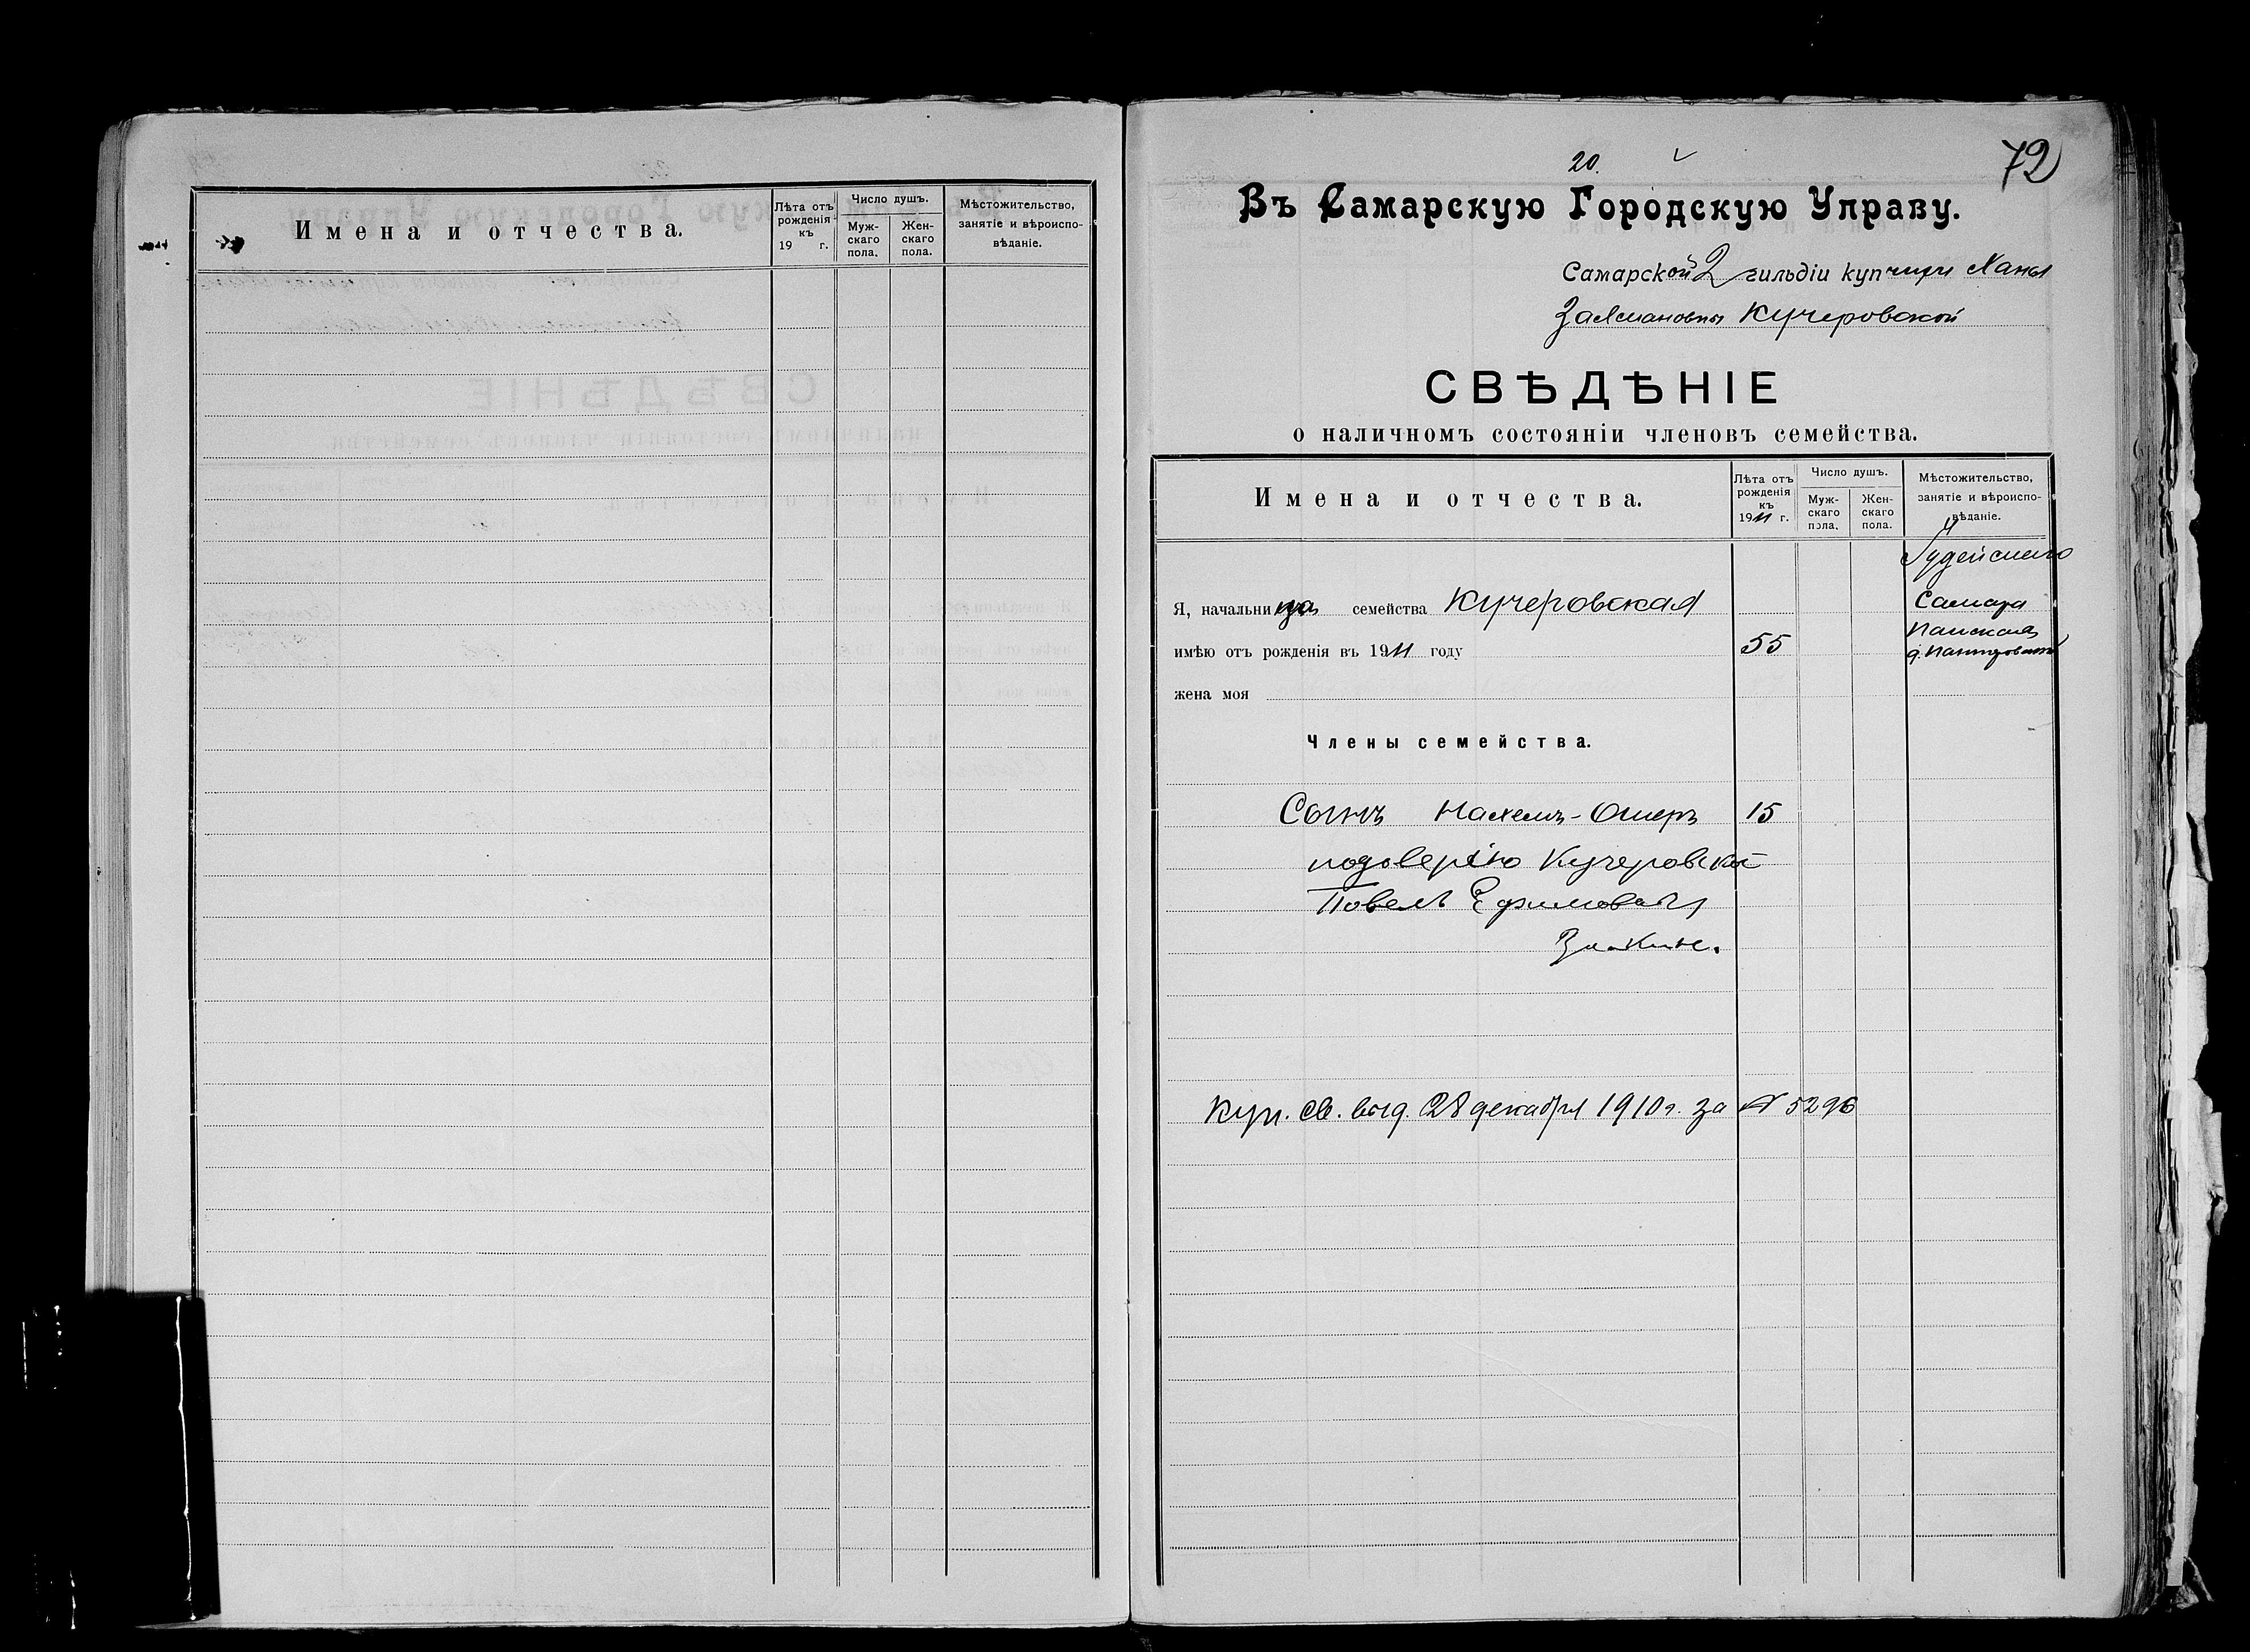 Имена и отчества.
Лѣта отъ рожденія къ 19 г.
Число душъ.
Мужскаго пола.
Женскаго пола.
Мѣстожительство, занятіе и вѣроисповѣданіе.
20.
72
Въ Самарскую Городскую Управу.
Самарской 2 гильдіи купчихи Ханы
Залмановны Кучеровской
СВѢДѢНІЕ
о наличномъ состояніи членовъ семейства.
Имена и отчества.
Лѣта отъ рожденія къ 1911 г.
Число душъ.
Мужскаго пола.
Женскаго пола.
Мѣстожительство, занятіе и вѣроисповѣданіе.
Іудейскаго
Я, начальница семейства Кучеровская
Самара
Панская
имѣю отъ рожденія въ 1911 году 55
жена моя
Члены семейства.
Сынъ Нахемъ-Ошеръ 15
подоверію Кучеровской
Повелъ Ефимовичъ
Куп. св. выд. 28 декабря 1910 г. за № 5296